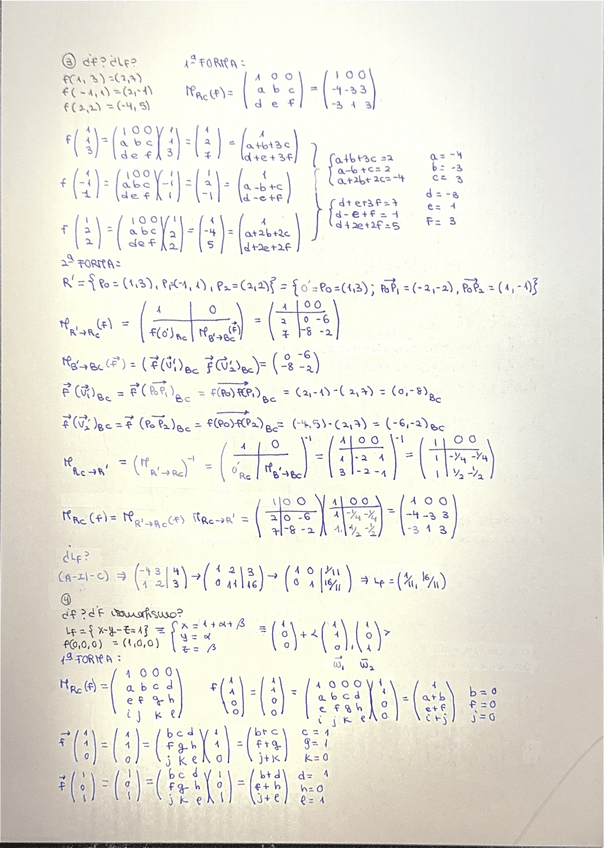 ③ ¿f? ¿Lf? 1ª FORMA:
f(1,3)=(2,7)
f(-1,1)=(2,-1)
f(2,2)=(-4,5)
M_Rc(f) = (1 0 0 / a b c / d e f) = (1 0 0 / -4 -3 3 / -3 1 3)
f(1 / 1 / 3) = (1 0 0 / a b c / d e f)(1 / 1 / 3) = (1 / 2 / 7) = (1 / a+b+3c / d+e+3f)
f(1 / -1 / 1) = (1 0 0 / a b c / d e f)(1 / -1 / 1) = (1 / 2 / -1) = (1 / a-b+c / d-e+f)
f(1 / 2 / 2) = (1 0 0 / a b c / d e f)(1 / 2 / 2) = (1 / -4 / 5) = (1 / a+2b+2c / d+2e+2f)
{a+b+3c=2 a=-4
a-b+c=2 b=-3
a+2b+2c=-4 c=3
{d+e+3f=7 d=-3
d-e+f=-1 e=1
d+2e+2f=5 f=3
2ª FORMA:
R' = {P0=(1,3), P1(-1,1), P2=(2,2)} = {O'=P0=(1,3); P0P1=(-2,-2), P0P2=(1,-1)}
M_R'→Rc(f) = (1 0 / f(O')_Rc M_B'→Bc(f)) = (1 0 0 / 2 0 -6 / 7 -8 -2)
M_B'→Bc(f) = (f(v1')_Bc f(v2')_Bc) = (0 -6 / -8 -2)
f(v1')_Bc = f(P0P1)_Bc = f(P0)f(P1)_Bc = (2,-1)-(2,7) = (0,-8)_Bc
f(v2')_Bc = f(P0P2)_Bc = f(P0)f(P2)_Bc = (-4,5)-(2,7) = (-6,-2)_Bc
M_Rc→R' = (M_R'→Rc)^-1 = (1 0 / O'_Rc M_B'→Bc)^-1 = (1 0 0 / 1 -2 1 / 3 -2 -1)^-1 = (1 0 0 / 1 -1/4 -1/4 / 1 1/2 -1/2)
M_Rc(f) = M_R'→Rc(f) M_Rc→R' = (1 0 0 / 2 0 -6 / 7 -8 -2)(1 0 0 / 1 -1/4 -1/4 / 1 1/2 -1/2) = (1 0 0 / -4 -3 3 / -3 1 3)
¿Lf?
(A-I|-C) ⇒ (-4 3 | 4 / 1 2 | 3) → (1 2 | 3 / 0 11 | 16) → (1 0 | 1/11 / 0 1 | 16/11) ⇒ Lf = (1/11, 16/11)
④
¿f? ¿f isomorfismo?
Lf = {x-y-z=1} ≡ {x=1+α+β
y=α
z=β
≡ (1 / 0 / 0) + <(1 / 1 / 0), (1 / 0 / 1)>
w1 w2
f(0,0,0) = (1,0,0)
1ª FORMA:
M_Rc(f) = (1 0 0 0 / a b c d / e f g h / i j k l) f(1 / 1 / 0 / 0) = (1 / 1 / 0 / 0) = (1 0 0 0 / a b c d / e f g h / i j k l)(1 / 1 / 0 / 0) = (1 / a+b / e+f / i+j) b=0 f=0 j=0
f(1 / 1 / 0) = (1 / 1 / 0) = (b c d / f g h / j k l)(1 / 1 / 0) = (b+c / f+g / j+k) c=1 g=1 k=0
f(1 / 0 / 1) = (1 / 0 / 1) = (b c d / f g h / j k l)(1 / 0 / 1) = (b+d / f+h / j+l) d=1 h=0 l=1